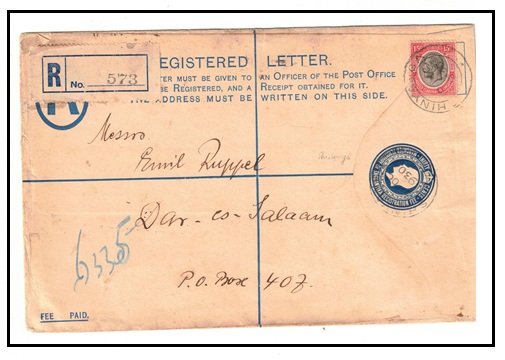 REGISTERED LETTER.
R No. 573
TER MUST BE GIVEN TO AN OFFICER OF THE POST OFFICE
BE REGISTERED, AND A RECEIPT OBTAINED FOR IT.
THE ADDRESS MUST BE WRITTEN ON THIS SIDE.
Messrs
Emil Ruppel
Dar-es-Salaam
P.O. Box 407.
6335
FEE PAID.